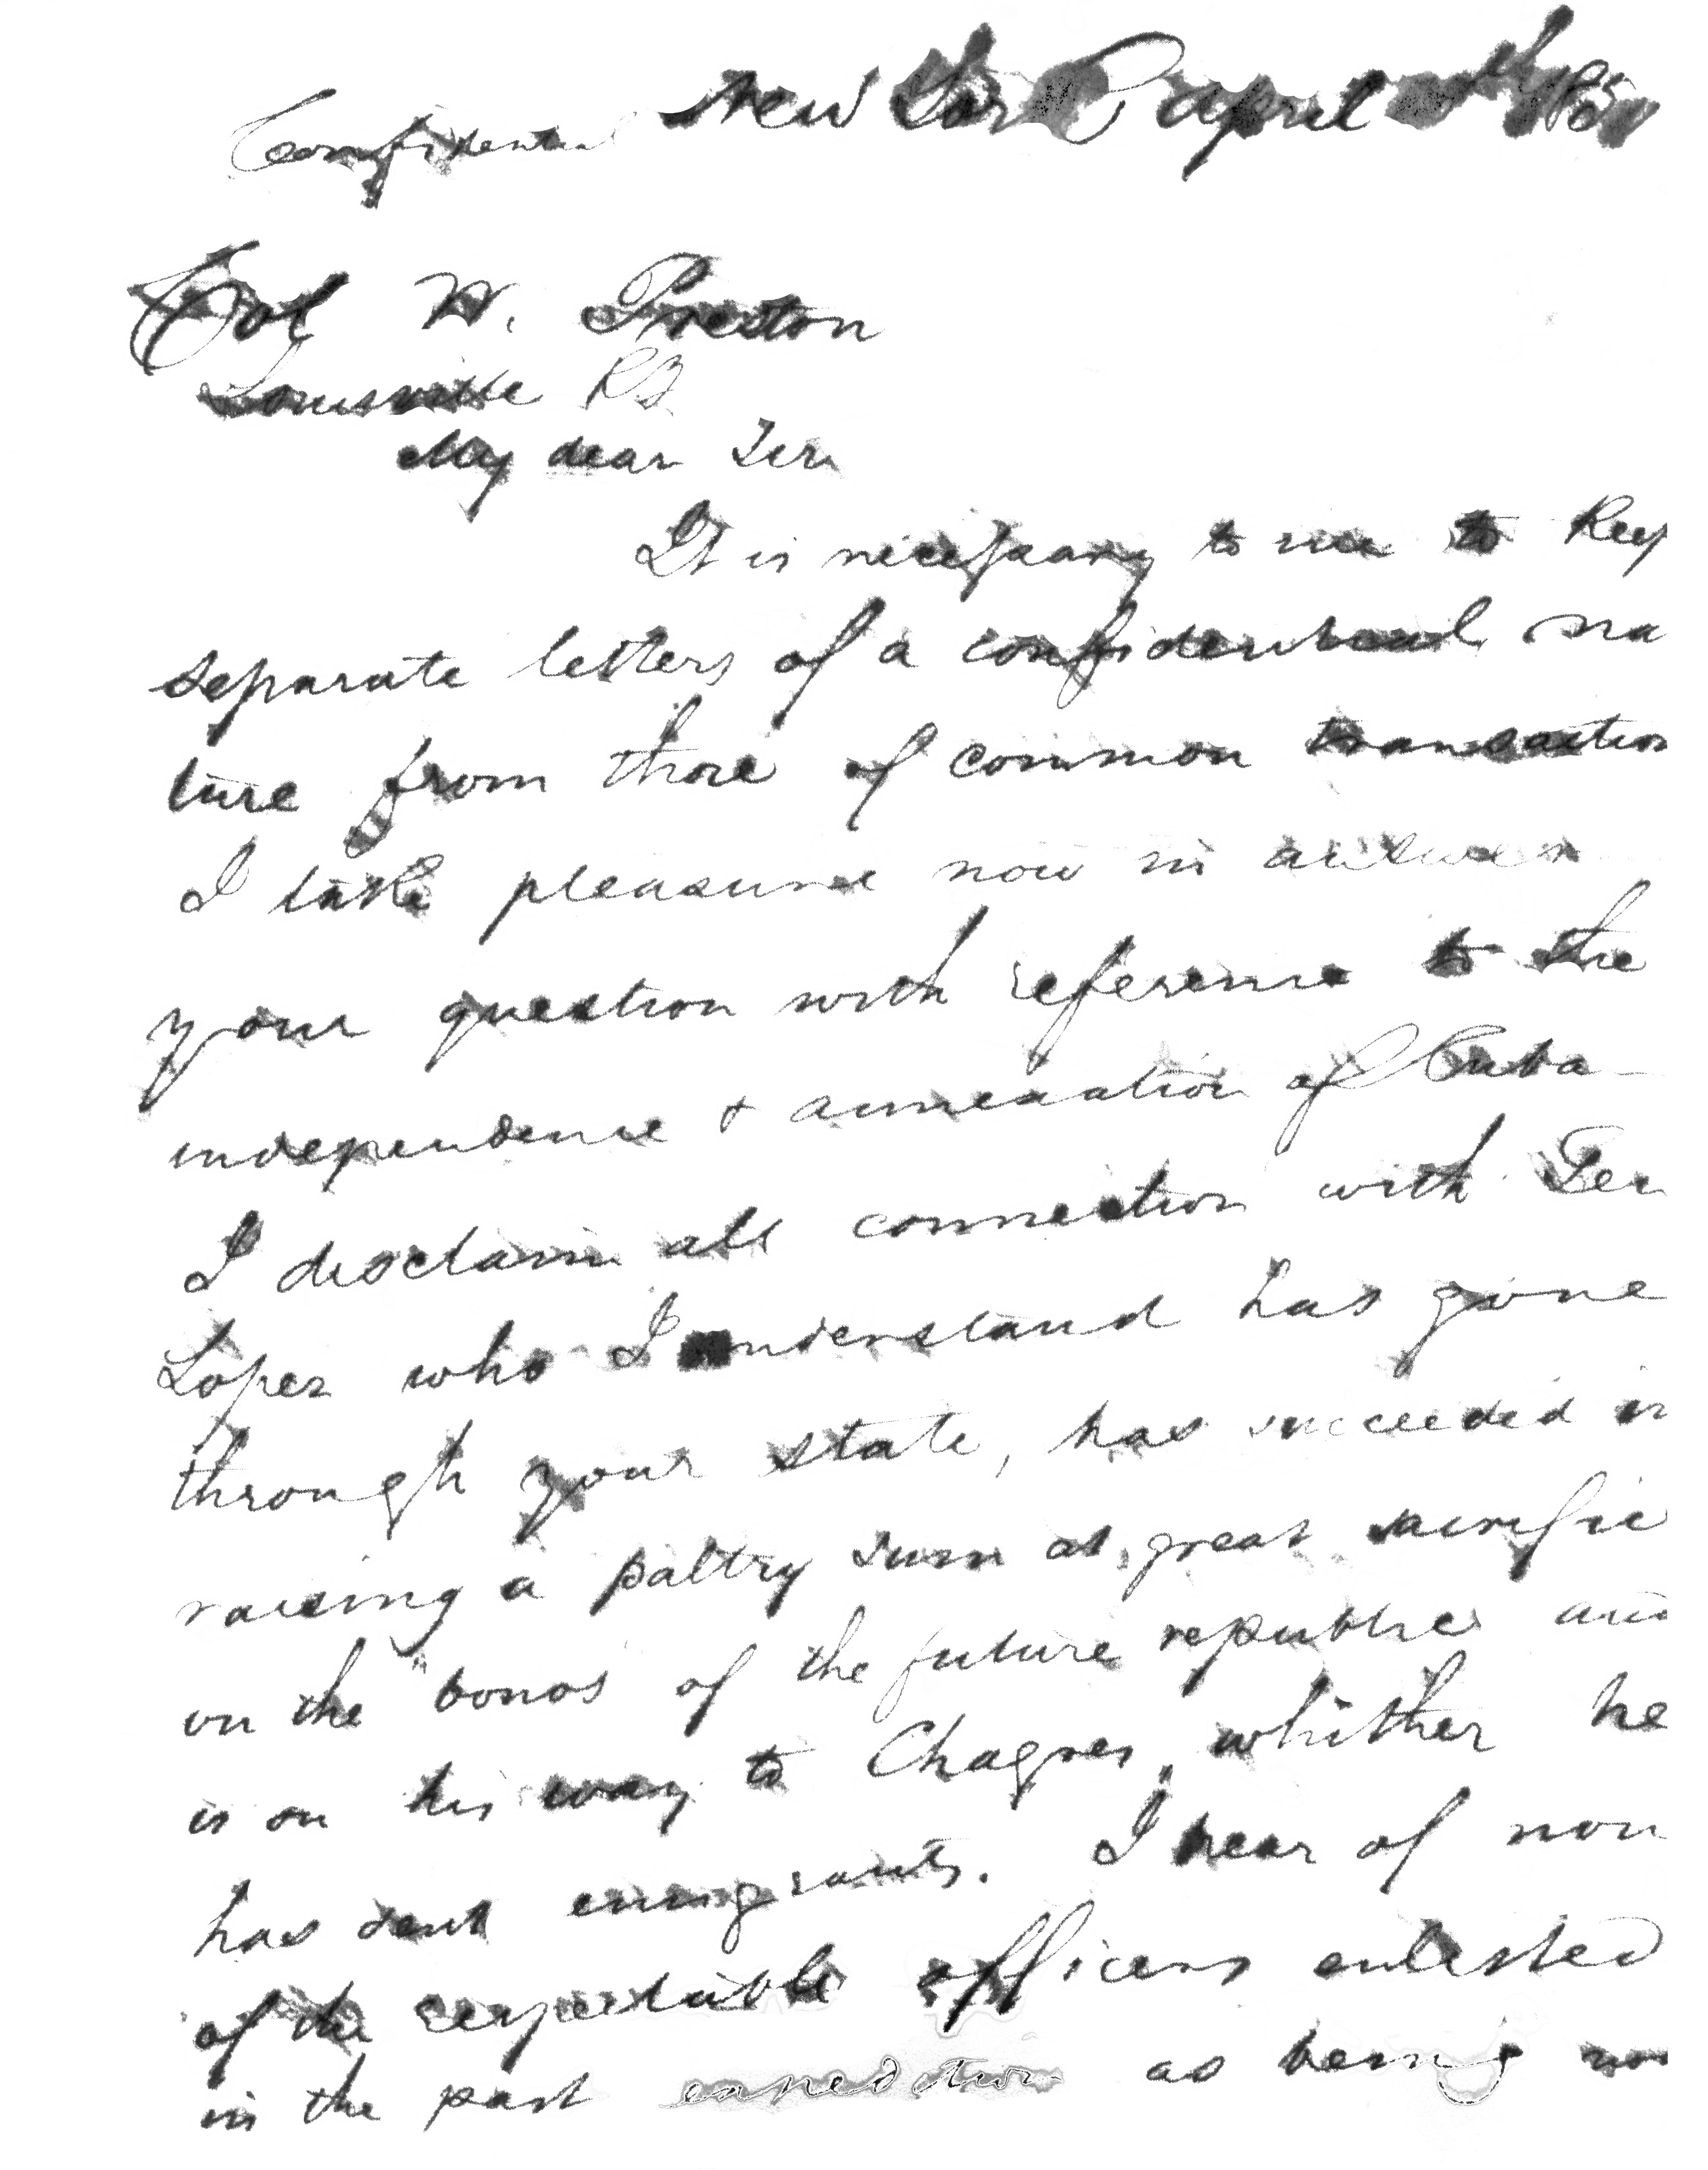 Confidential New York April 185
Col W. Preston
Louisville Ky
My dear Sir
It is necessary to me to Keep
separate letters of a confidential na
ture from those of common transaction
I take pleasure now in answer
your question with reference to the
independence & annexation of Cuba
I disclaim all connection with Gen
Lopez who I understand has gone
through your state, has succeeded in
raising a paltry sum at great sacrifice
on the "bonds" of the future republic and
is on his way to Chagres, whither he
has sent emigrants. I hear of non
of the respectable officers enlisted
in the past expedition as being